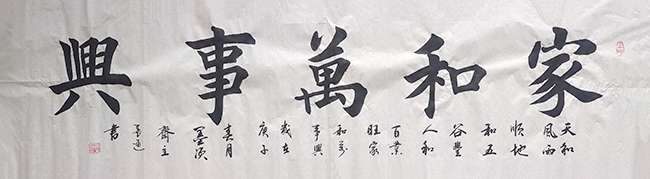 家和萬事興
天和
風雨
順地
和五
谷豐
人和
百業
旺家
和萬
事興
歲在
庚子
春月
墨
齋主
書